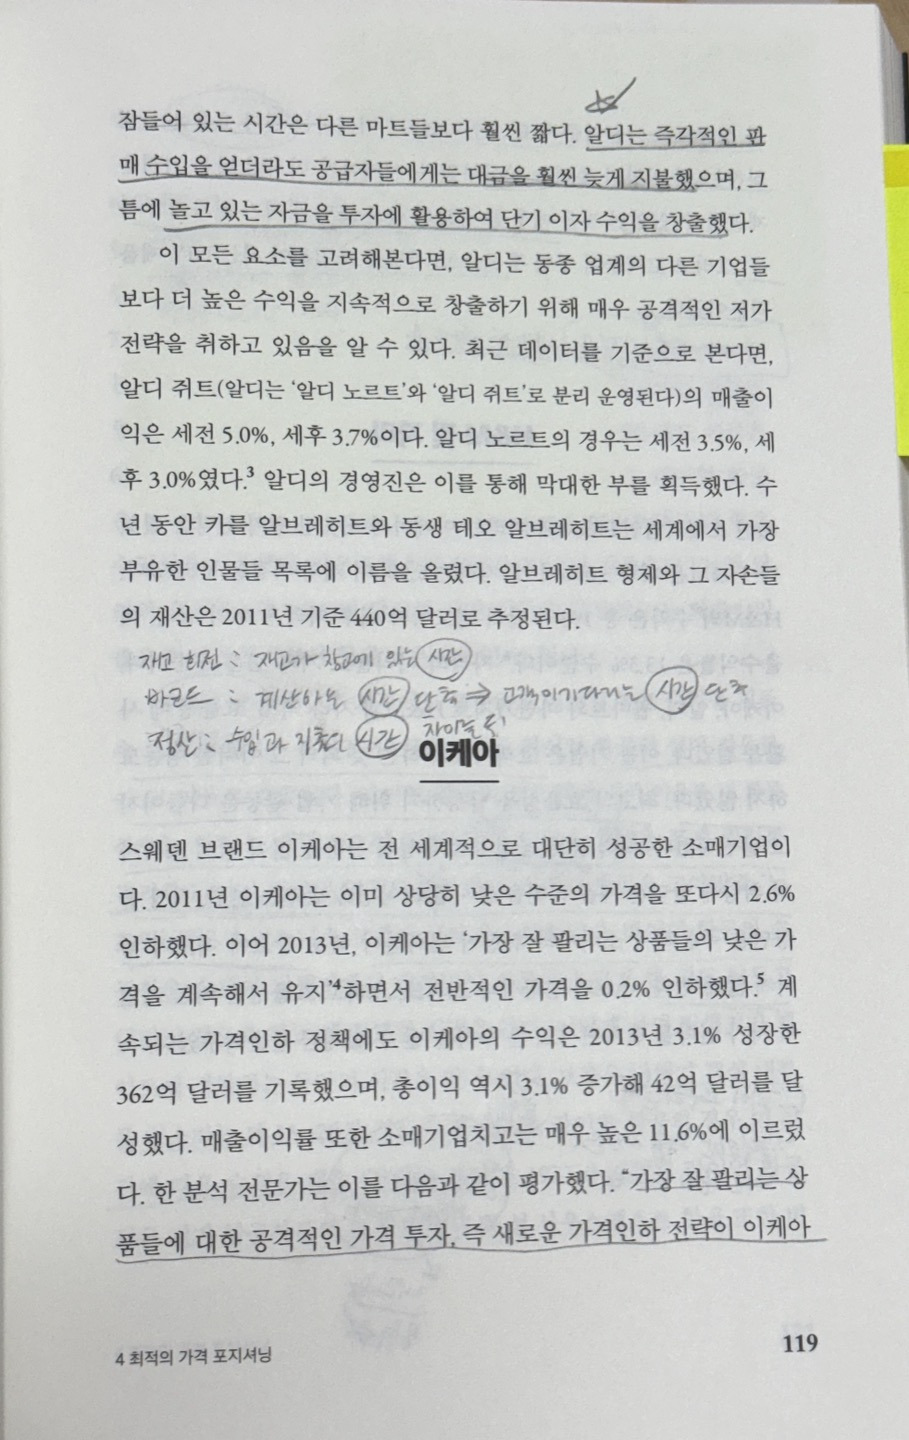 잠들어 있는 시간은 다른 마트들보다 훨씬 짧다. 알디는 즉각적인 판
매 수입을 얻더라도 공급자들에게는 대금을 훨씬 늦게 지불했으며, 그
틈에 놀고 있는 자금을 투자에 활용하여 단기 이자 수익을 창출했다.
이 모든 요소를 고려해본다면, 알디는 동종 업계의 다른 기업들
보다 더 높은 수익을 지속적으로 창출하기 위해 매우 공격적인 저가
전략을 취하고 있음을 알 수 있다. 최근 데이터를 기준으로 본다면,
알디 쥐트(알디는 ‘알디 노르트’와 ‘알디 쥐트’로 분리 운영된다)의 매출이
익은 세전 5.0%, 세후 3.7%이다. 알디 노르트의 경우는 세전 3.5%, 세
후 3.0%였다.³ 알디의 경영진은 이를 통해 막대한 부를 획득했다. 수
년 동안 카를 알브레히트와 동생 테오 알브레히트는 세계에서 가장
부유한 인물들 목록에 이름을 올렸다. 알브레히트 형제와 그 자손들
의 재산은 2011년 기준 440억 달러로 추정된다.
재고 회전 : 재고가 창고에 있는 시간
바코드 : 계산하는 시간 단축 ⇒ 고객이 기다리는 시간 단축
정산 : 수입과 지출의 시간 차이
이케아
스웨덴 브랜드 이케아는 전 세계적으로 대단히 성공한 소매기업이
다. 2011년 이케아는 이미 상당히 낮은 수준의 가격을 또다시 2.6%
인하했다. 이어 2013년, 이케아는 ‘가장 잘 팔리는 상품들의 낮은 가
격을 계속해서 유지’⁴하면서 전반적인 가격을 0.2% 인하했다.⁵ 계
속되는 가격인하 정책에도 이케아의 수익은 2013년 3.1% 성장한
362억 달러를 기록했으며, 총이익 역시 3.1% 증가해 42억 달러를 달
성했다. 매출이익률 또한 소매기업치고는 매우 높은 11.6%에 이르렀
다. 한 분석 전문가는 이를 다음과 같이 평가했다. “가장 잘 팔리는 상
품들에 대한 공격적인 가격 투자, 즉 새로운 가격인하 전략이 이케아
4 최적의 가격 포지셔닝
119